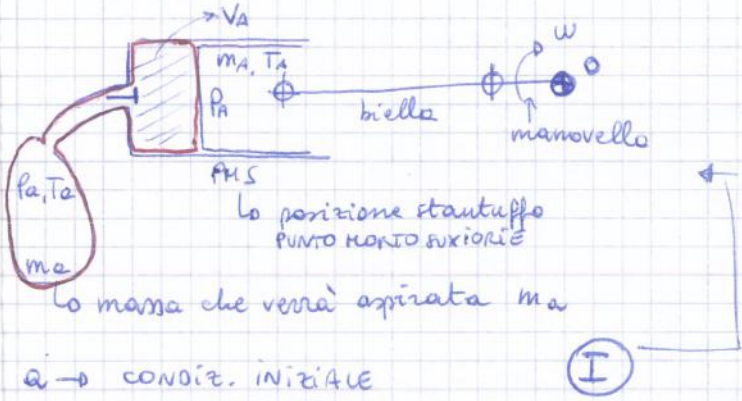 VA
mA, TA
PA
ω
O
biella
manovella
PMS
Pa, Ta
ma
↳ posizione stantuffo
PUNTO MORTO SUPERIORE
↳ massa che verrà aspirata ma
a → CONDIZ. INIZIALE
I